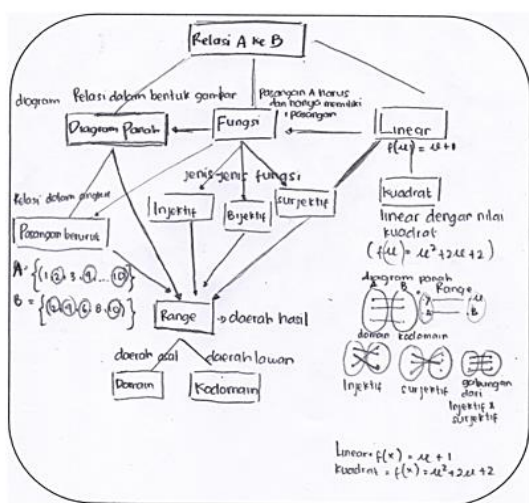 Relasi A ke B
diagram
Relasi dalam bentuk gambar
Pasangan A harus
dan hanya memiliki
1 pasangan
Diagram Panah
Fungsi
Linear
f(x) = x+1
jenis-jenis fungsi
Kuadrat
linear dengan nilai
kuadrat
(f(x) = x²+2x+2)
Relasi dalam angka
Injektif
Bijektif
Surjektif
Pasangan berurut
A = {(1, 2, 3, 4, ... 10)}
B = {(2, 4, 6, 8, 10)}
Range
→ daerah hasil
daerah asal
daerah lawan
Domain
Kodomain
diagram panah
A
B
Range
domain kodomain
Injektif
surjektif
gabungan
dari
Injektif &
surjektif
Linear = f(x) = x + 1
kuadrat = f(x) = x²+2x+2